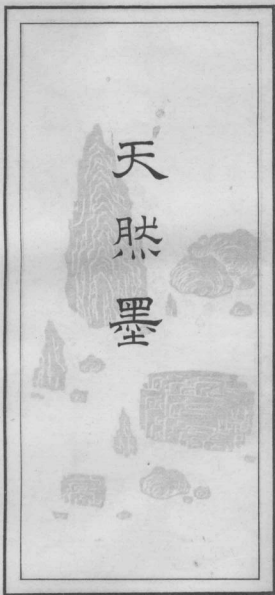 天然墨